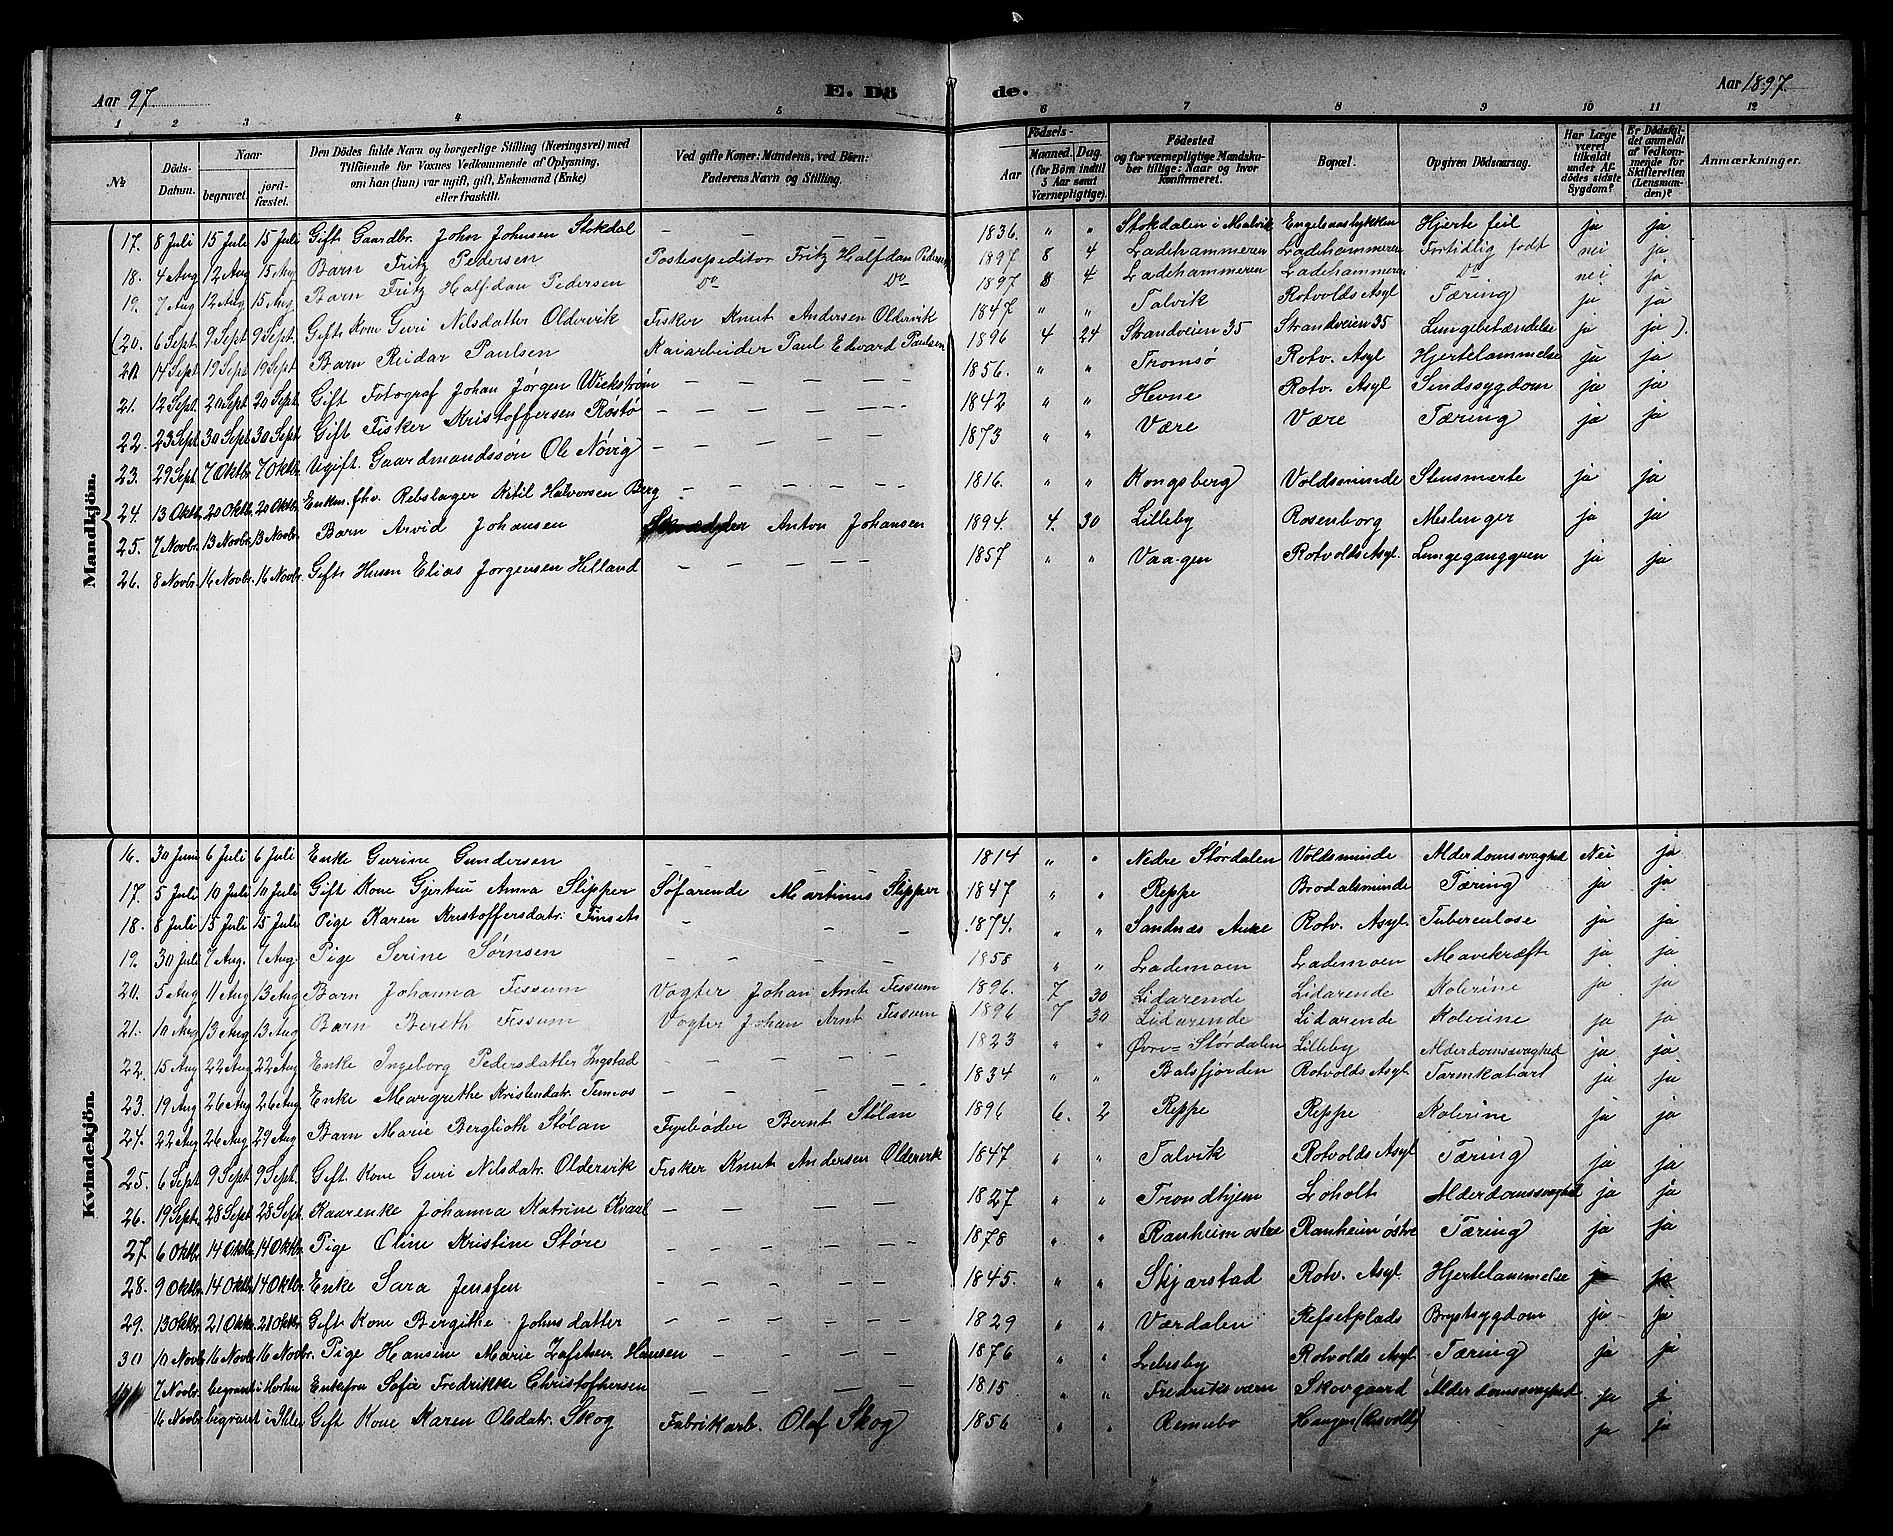 Aar 97. E. Dö de. Aar 1897.
1 2 3 4 5 6 7 8 9 10 11 12
№ Döds-Datum. Naar begravet. jord-fæstet. Den Dödes fulde Navn og borgerlige Stilling (Næringsvei) med Tilföiende for Voxnes Vedkommende af Oplysning, om han (hun) var ugift, gift, Enkemand (Enke) eller fraskilt. Ved gifte Koner: Mandens, ved Börn: Faderens Navn og Stilling. Födsels- Aar Maaned. Dag. (for Børn indtil 5 Aar samt Værnepligtige). Födested og for værnepligtige Mandskaber tillige: Naar og hvor konfirmeret. Bopæl. Opgiven Dödsaarsag. Har Læge været tilkaldt under Afdödes sidste Sygdom? Er Dödsfaldet anmeldt af Vedkommende for Skifteretten (Lensmanden)? Anmærkninger.
Mandkjön.
17. 8 Juli 15 Juli 15 Juli Gift Gaardbr. John Johnsen Stokdal — — — — 1836. " " Stokdalen i Malvik Engelsaaslykken Hjerte feil ja ja
18. 4 Aug 12 Aug 15 Aug Barn Fritz Pedersen Postexpeditor Fritz Halfdan Pedersen 1897 8 4 Ladehammeren Ladehammeren Fortidlig født nei ja
19. 7 Aug 12 Aug 15 Aug Barn Fritz Halfdan Pedersen Do Do 1897 8 4 Ladehammeren Ladehammeren Do nei ja
(20. 6 Sept 9 Sept 9 Sept. Gift Kone Guri Nilsdatter Oldervik Fisker Knut Andersen Oldervik 1847 " " Talvik Rotvolds Asyl Tæring ja ja).
20 14 Sept 19 Sept 19 Sept Barn Reidar Paulsen Kaiarbeider Paul Edvard Paulsen 1896 4 24 Strandveien 35 Strandveien 35 Lungebetændelse ja ja
21. 12 Sept. 20 Sept 20 Sept Gift Fotograf Johan Jørgen Wickstrøm — — — — 1856. " " Tromsø Rotv. Asyl Hjertelammelse ja ja
22. 23 Sept 30 Sept 30 Sept. Gift Fisker Kristoffersen Røstø — — — — 1842 " " Hevne Rotv. Asyl Sindssygdom ja ja
23. 29 Sept 7 Oktbr 7 Oktbr. Ugift. Gaardmandssøn Ole Nøvig — — — — 1873 " " Være Være Tæring ja ja
24. 13 Oktbr 20 Oktbr 20 Oktbr Enkm. fhv. Rebslager Kitil Halvorsen Berg — — — — 1816. " " Kongsberg Voldsminde Stensmerte ja ja
25. 7 Novbr. 13 Novbr 13 Novbr. Barn Arvid Johansen Anton Johansen 1894. 4. 30 Lilleby Rosenborg Meslinger ja ja
26. 8 Novbr. 16 Novbr 16 Novbr. Gift Husm Elias Jørgensen Helland — — — — 1857 " " Vaagen Rotvolds Asyl Lungegangræn ja ja
Kvindekjön.
16. 30 Juni 6 Juli 6 Juli Enke Gurine Gundersen — — — — 1814 " " Nedre Størdalen Voldsminde Alderdomssvaghed Nei ja
17. 5 Juli 10 Juli 10 Juli Gift Kone Gjertru Anna Slipper Søfarende Martinus Slipper 1847 " " Reppe Brodalsminde Tæring ja ja
18. 8 Juli 15 Juli 15 Juli Pige Karen Kristoffersdatr. — — — 1874. " " Sandnæs Rotv. Asyl. Tuberculose ja ja
19. 30 Juli 7 Aug. 7 Aug. Pige Serine Sørnsen — — — — 1858 " " Lademoen Lademoen Mavekræft ja ja
20. 5 Aug 11 Aug 13 Aug Barn Johanna Tessum Vogter Johan Arnt Tessum 1896. 7 30 Lidarende Lidarende Kolerine ja ja
21. 10 Aug 13 Aug 13 Aug Barn Bereth Tessum Vogter Johan Arnt Tessum 1896 7 30 Lidarende Lidarende Kolerine ja ja
22. 15 Aug 22 Aug 22 Aug Enke Ingeborg Pedersdatter Ingstad — — — — 1823 " " Øvre Størdalen Lilleby Alderdomssvaghed ja ja
23. 19 Aug 26 Aug 26 Aug Enke Margrethe Kristendatr. — — — — 1834 " " Balsfjorden Rotvolds Asyl Tarmkatarr ja ja
24. 22 Aug 26 Aug 29 Aug Barn Marie Berglioth Stølan Fyrbøder Bernt Stølan 1896 6. 2 Reppe Reppe Kolerine ja ja
25. 6 Sept 9 Sept 9 Sept. Gift. Kone Guri Nilsdatr. Oldervik Fisker Knut Andersen Oldervik 1847 " " Talvik Rotvolds Asyl Tæring ja ja
26. 19 Sept. 28 Sept 28 Sept. Kaarenke Johanna Katrine Kvarl — — — — 1827 " " Trondhjem Loholt Alderdomssvaghed ja ja
27. 6 Oktbr 14 Oktbr 14 Oktbr. Pige Oline Kristine Støre — — — — 1878 " " Ranheim østre Ranheim østre Tæring ja ja
28. 9 Oktbr 14 Oktbr 14 Oktbr Enke Sara Jenssen — — — — 1845. " " Skjærstad Rotv. Asyl. Hjertelammelse ja ja
29. 13 Oktbr 21 Oktbr 21 Oktbr. Gift Kone Bergithe Johnsdatter — — — — 1829 " " Værdalen Refsetplads Brystsygdom ja ja
30 10 Novbr 16 Novbr. 16 Novbr. Pige Hansine Marie Hansen — — — — 1876 " " Lebesby Rotvolds Asyl Tæring ja ja
7 Novbr. begravet i Horten Enkefru Sofie Fredrikke Christophersen — — — — 1815 " " Fredriksværn Skovgaard Alderdomssvaghed ja j
16 Novbr begravet i Ihlen Gift Kone Karen Olsdatr. Skog Fabrikarb. Olaf Skog 1856 " " Rennebo Haugen ja ja